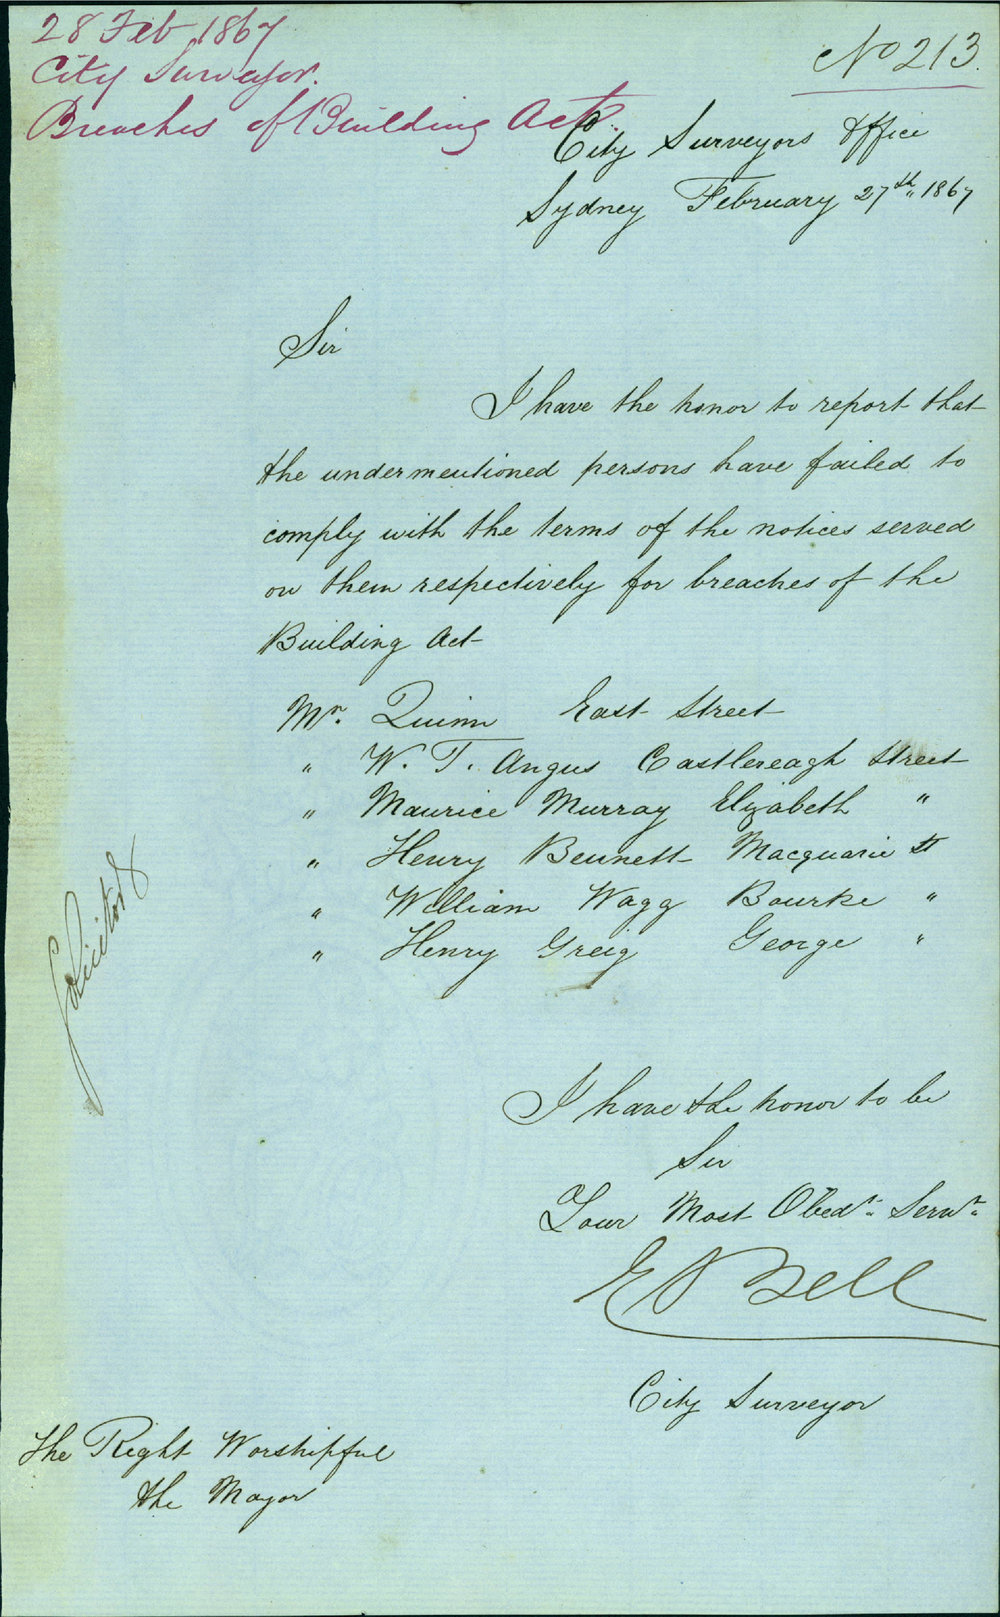 28 Feb 1867
City Surveyor.
Breaches of Building Act.
No 213.
City Surveyors Office
Sydney February 27th 1867
Sir
I have the honor to report that
the undermentioned persons have failed to
comply with the terms of the notices served
on them respectively for breaches of the
Building Act
Mr. Quinn East Street
" W. T. Angus Castlereagh Street
" Maurice Murray Elizabeth "
" Henry Bennett Macquarie St
" William Wagg Bourke "
" Henry Greig George "
Solicitor
I have the honor to be
Sir
Your Most Obedt. Servt.
E Bell
City Surveyor
The Right Worshipful
the Mayor